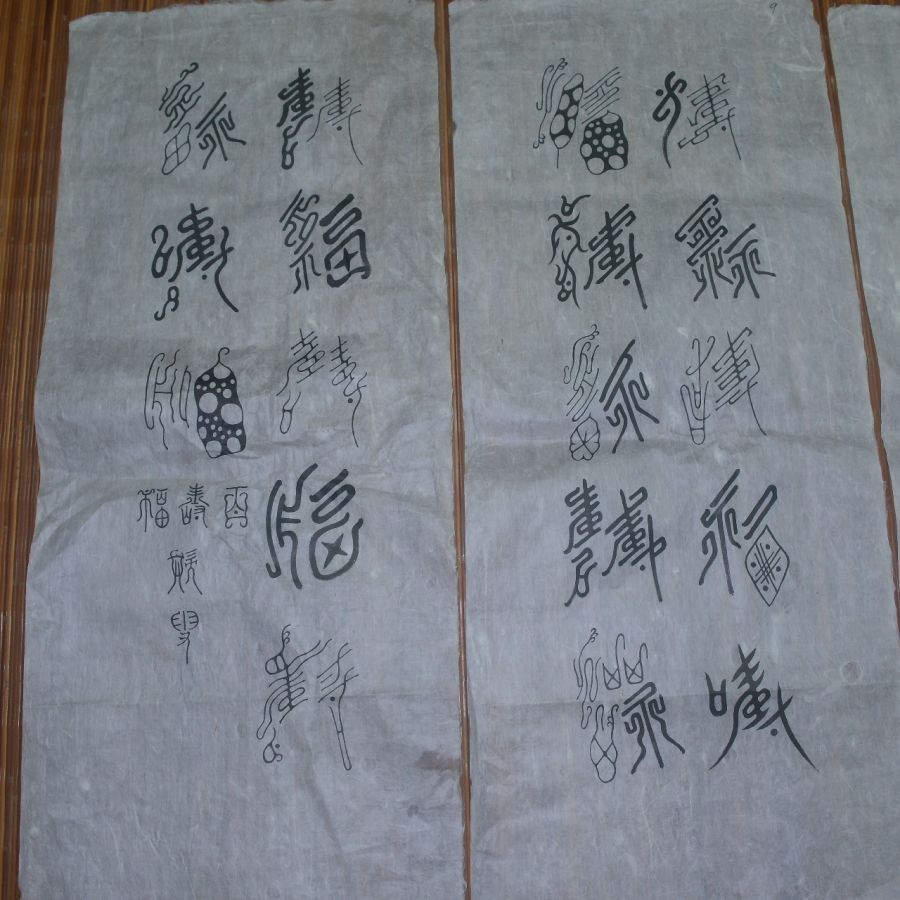 壽福壽福壽
福壽福壽福
壽福壽福壽
福壽福
百壽福
叟